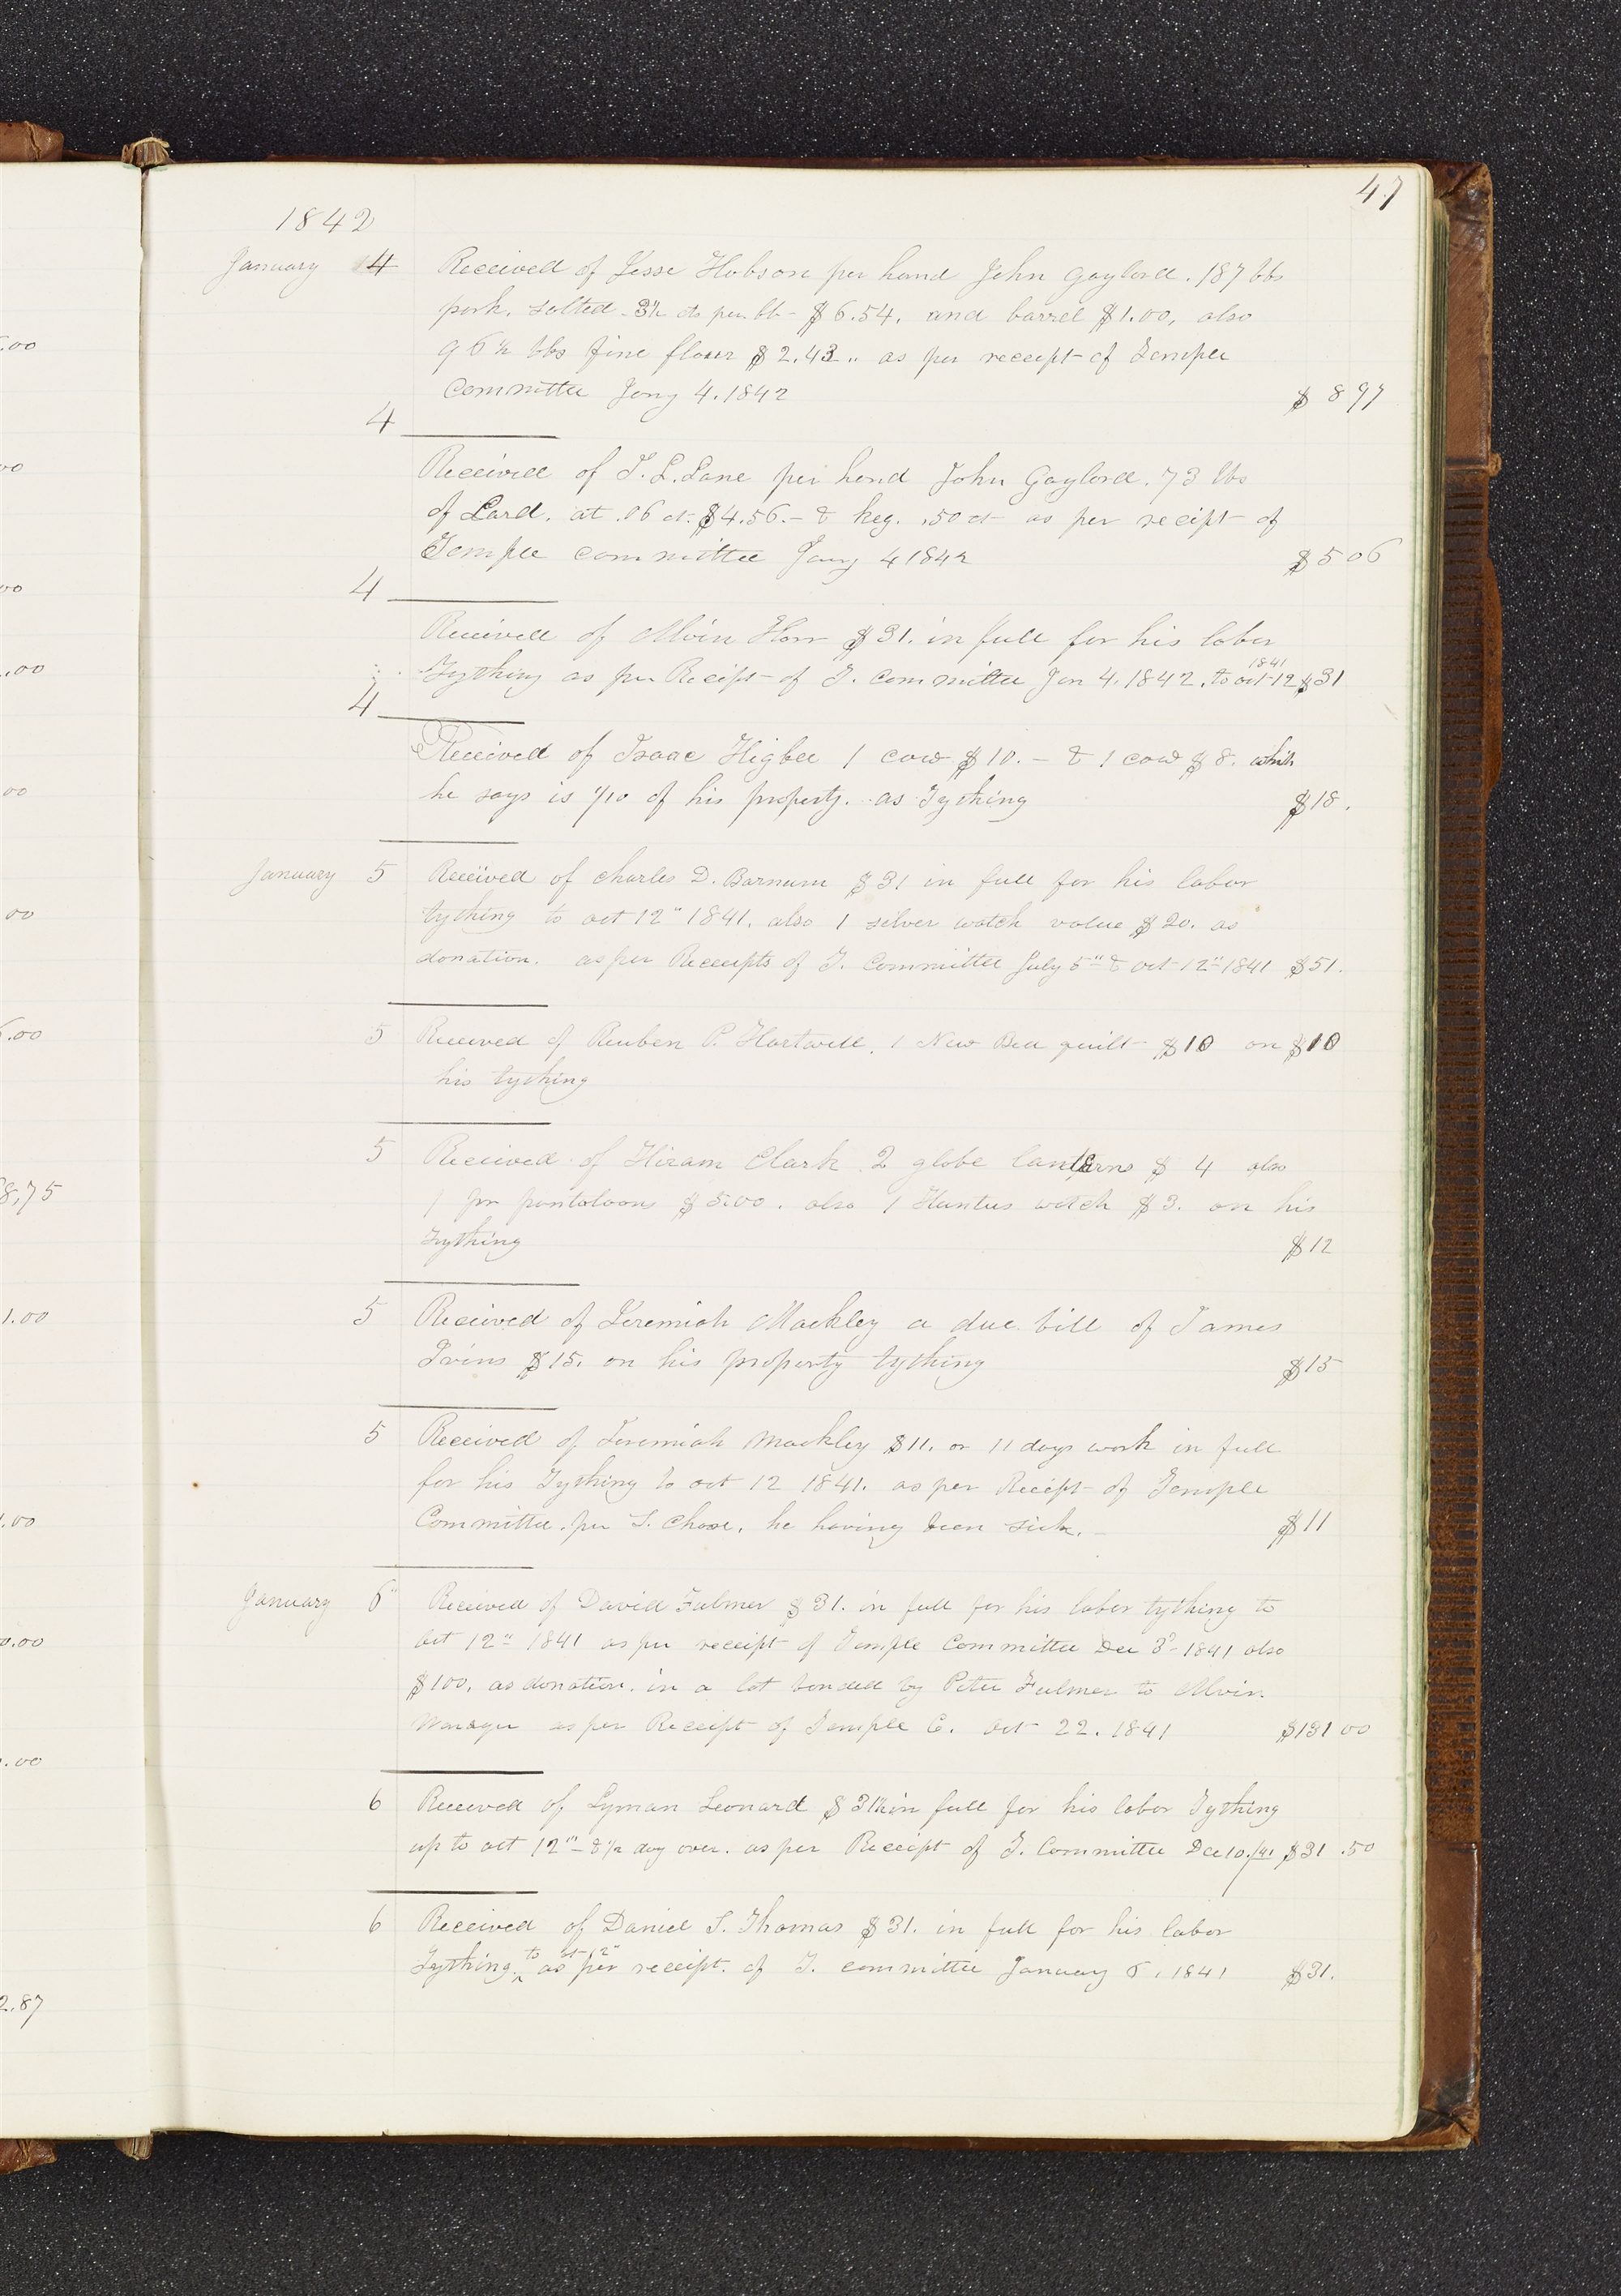 47
1842
January 4 Received of Jesse Hobson per hand John Gaylord. 187 lbs
pork. salted. 3½ cts per lb - $6.54. and barrel $1.00, also
96½ lbs fine flour $2.43 .. as per receipt of Temple
Committee Jany 4. 1842 $897
4
Received of T. L. Lane per hand John Gaylord. 73 lbs
of Lard. at .06 ct. $4.56.- & keg. .50 ct as per receipt of
Temple committee Jany 4 1842 $506
4
Received of Alvin Horr $31. in full for his labor
Tything as per Receipt of T. committee Jan 4, 1842. to oct 12 1841 $31
4
Received of Isaac Higbee 1 cow $10. - & 1 cow $8. which
he says is 1/10 of his property. as Tything $18.
January 5 Received of Charles D. Barnum $31 in full for his labor
tything to oct 12" 1841. also 1 silver watch value $20. as
donation. as per Receepts of T. Committee July 5" & oct 12" 1841 $51.
5 Received of Reuben P. Hartwell. 1 New Bed quilt $10 on $10
his tything
5 Received of Hiram Clark 2 globe lanterns $4 also
1 pr pantaloons $5.00. also 1 Hunters watch $3. on his
Tything $12
5 Received of Jeremiah Mackley a due bill of James
Ivins $15. on his property tything $15
5 Received of Jeremiah Mackley $11. or 11 days work in full
for his Tything to oct 12 1841. as per Receipt of Temple
Committee. per I. Chase, he having been sick. - $11
January 6" Received of David Fulmer $31. in full for his labor tything to
Oct 12" 1841 as per receipt of Temple Committee Dec 3d 1841 also
$100. as donation. in a lot bonded by Peter Fulmer to Alvin
as per Receipt of Temple C. Oct 22. 1841 $131 00
6 Received of Lyman Leonard $31½ in full for his labor Tything
up to oct 12" - & ½ day over. as per Receipt of T. Committee Dec 10./41 $31.50
6 Received of Daniel S. Thomas $31. in full for his labor
Tything, to oct 12" as per receipt. of T. committee January 6, 1841 $31.
.00
00
00
.00
00
00
.00
8,75
1.00
.00
0.00
.00
2.87